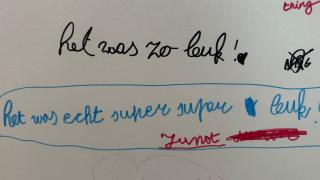 thing
het was zo leuk!
het was echt super super leuk!
Junot